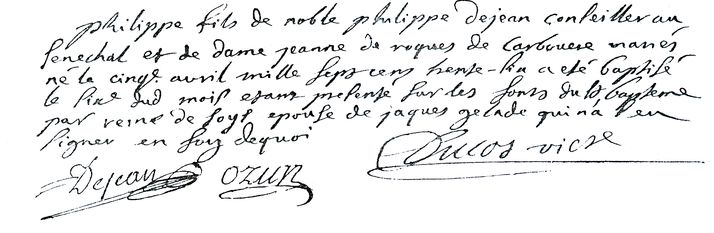 philippe fils de noble philippe dejean conseiller au
senechal et de dame jeanne de roques de carbouere mariés
né le cinqe avril mille sept cens trente-six a eté baptisé
le sixe dud mois etant presenté sur les fonts du st bapteme
par reine de soyt epouse de jaques gelade qui n'a seu
signer en foy dequoi
Dejean ozun Ducos vicre